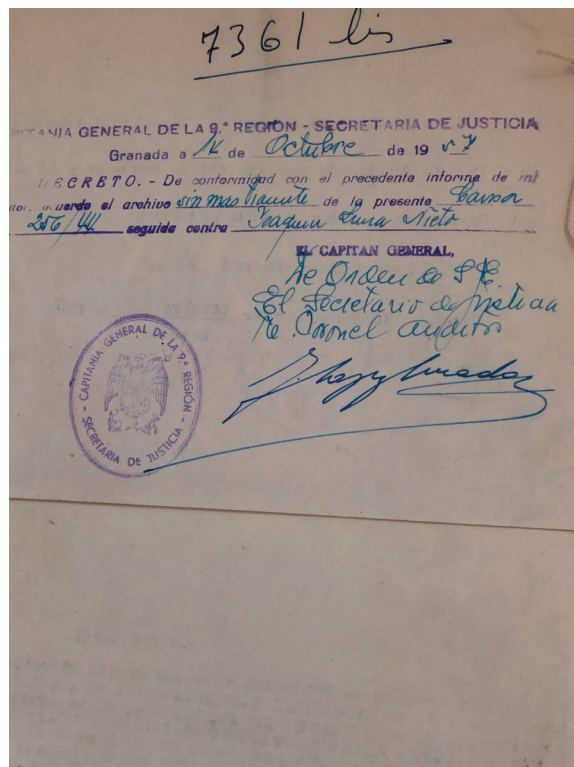 7361 bis
PITANIA GENERAL DE LA 9.ª REGIÓN - SECRETARIA DE JUSTICIA
Granada a de Octubre de 19 57
DECRETO. - De conformidad con el precedente informe de mi
acuerdo el archivo sin mas tramite de la presente Causa
256/44 seguida contra Joaquin Luna Nieto
EL CAPITAN GENERAL,
De Orden de S.E.
El Secretario de Justicia
Te. Coronel auditor
CAPITANIA GENERAL DE LA 9.ª REGIÓN
SECRETARIA DE JUSTICIA